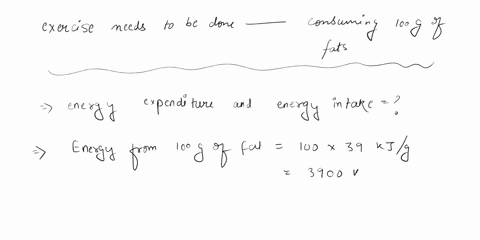 exercise needs to be done — consuming 100 g of
fats
=> energy expenditure and energy intake = ?
=> Energy from 100 g of fat = 100 x 39 kJ/g
= 3900 k